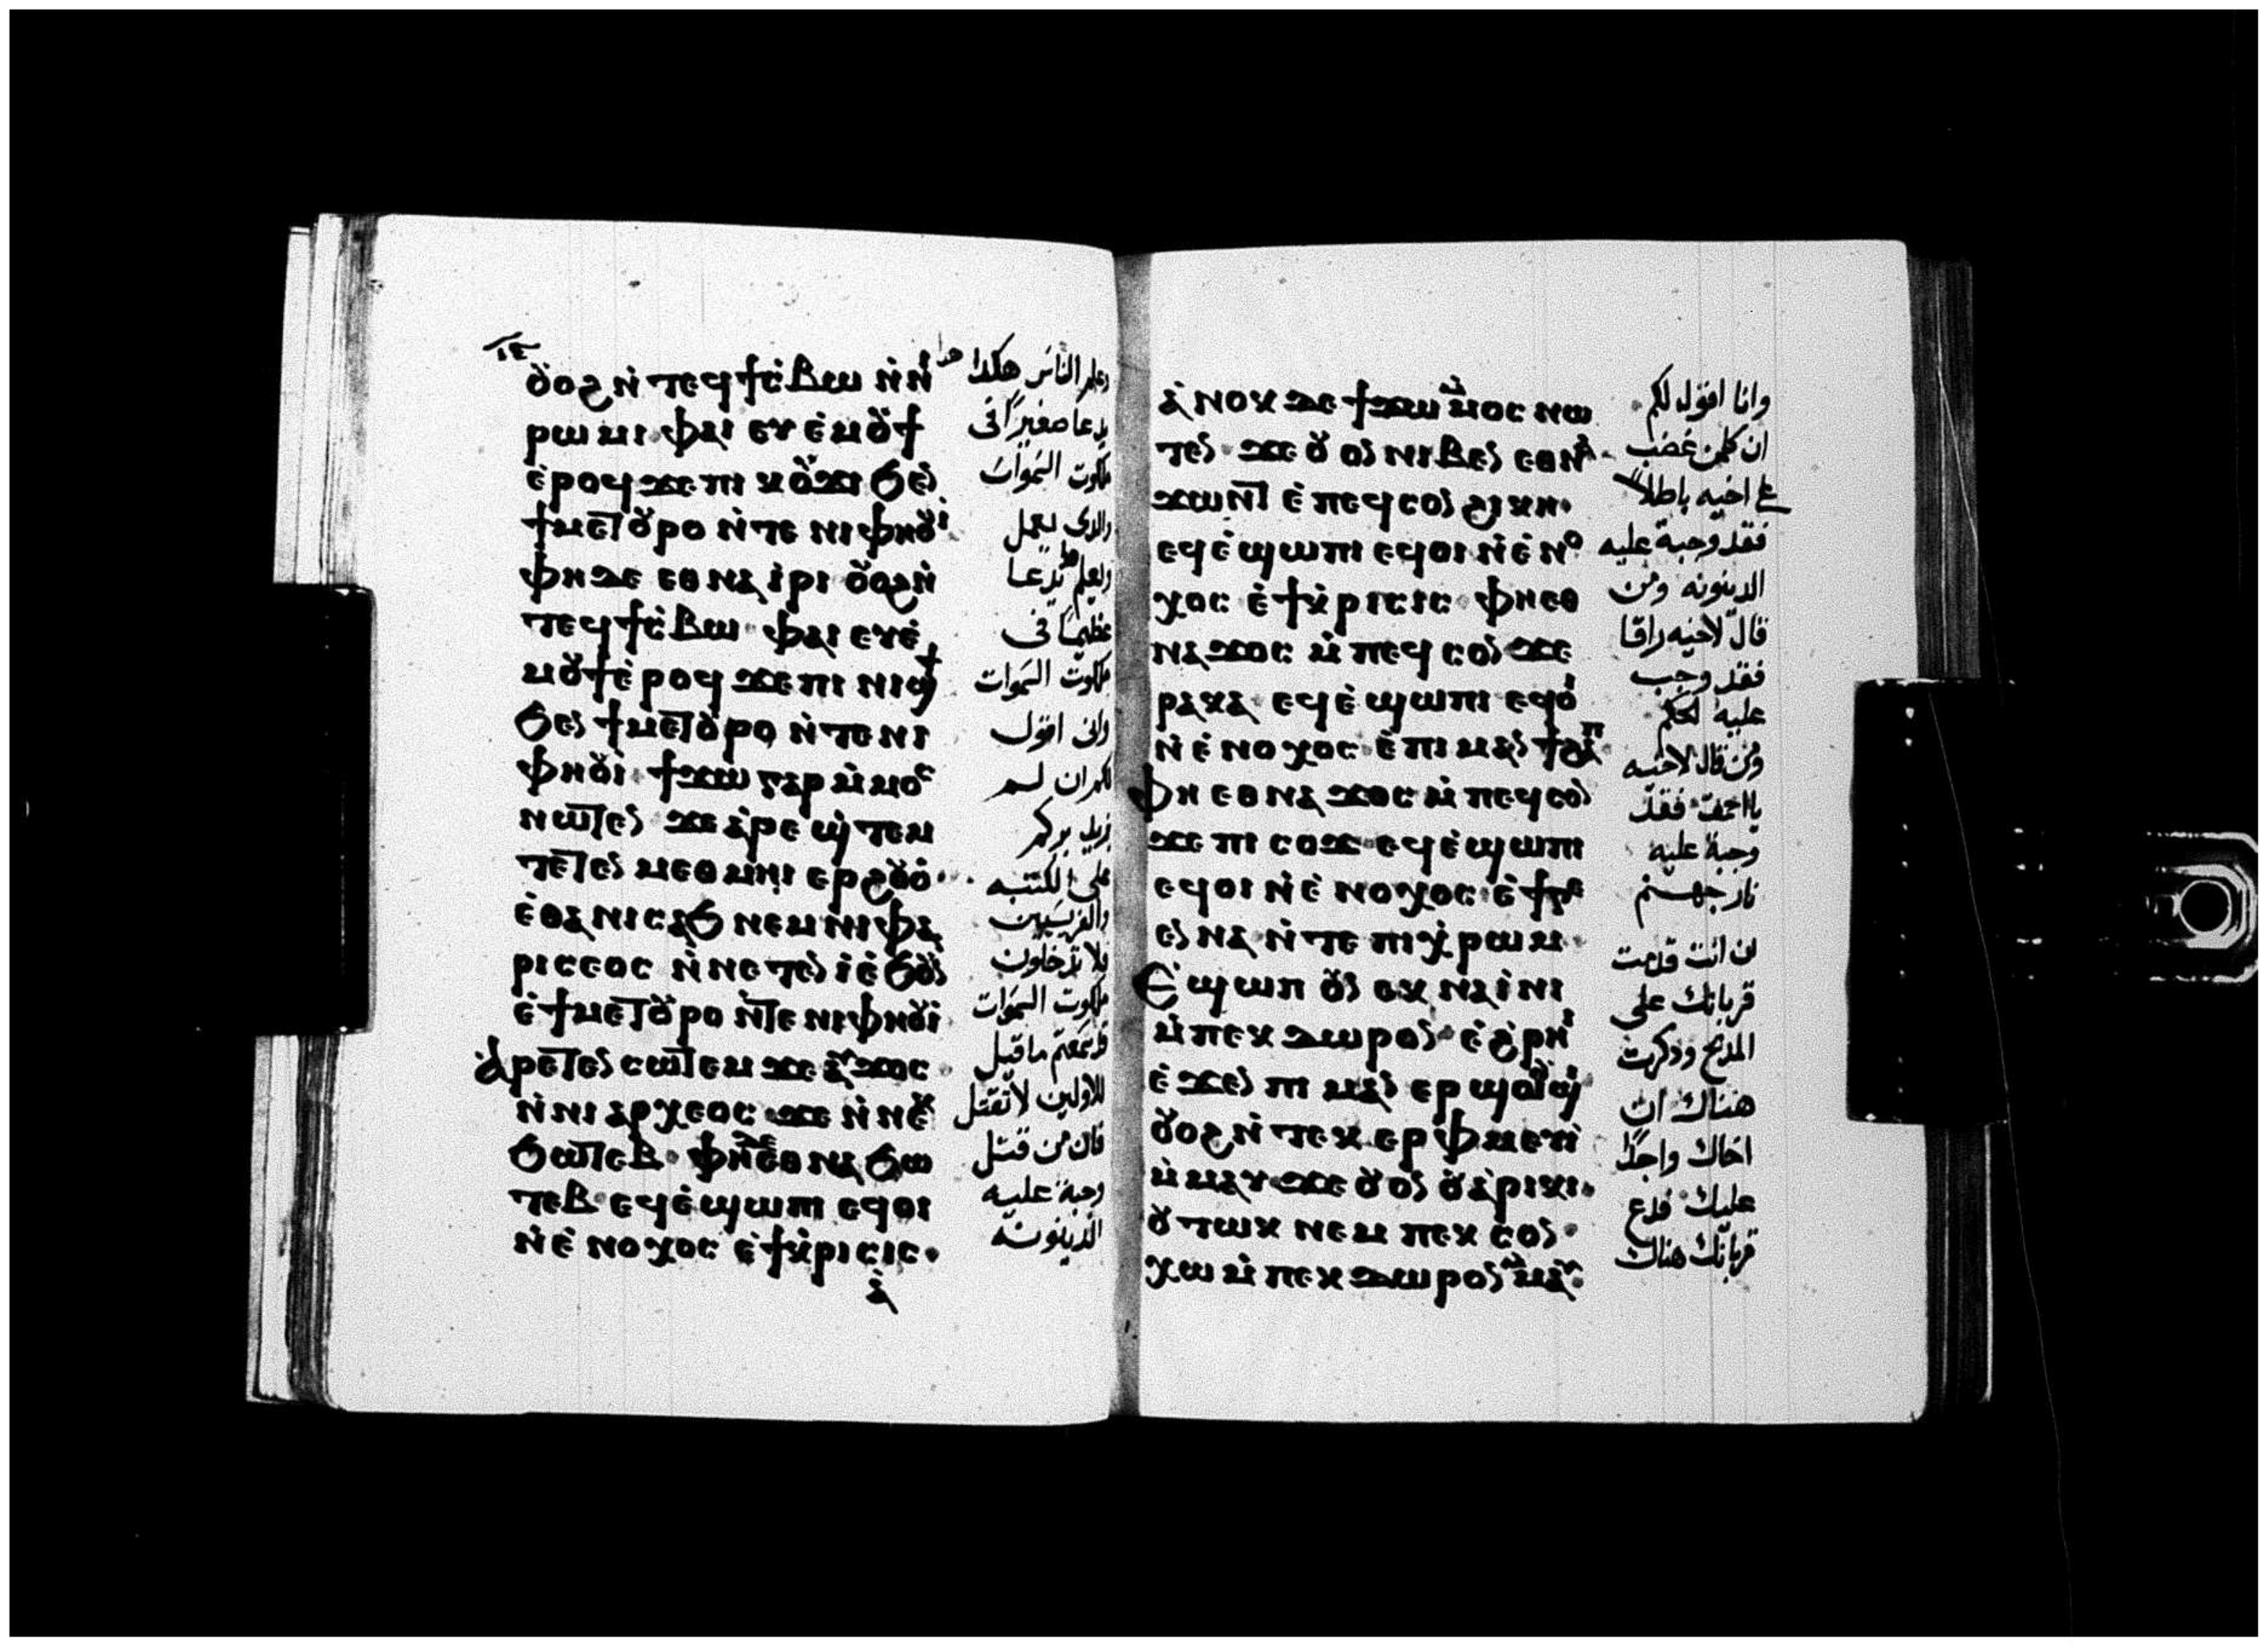 ⲟ̀ⲩⲟϩ ⲛ̀ ⲧⲉϥϯⲥ̀ⲃⲱ ⲛ̀ⲛⲓ
ⲣⲱⲙⲓ ⲫⲁⲓ ⲉⲩⲉ̀ⲙⲟⲩϯ
ⲉ̀ⲣⲟϥ ϫⲉ ⲡⲓ ⲕⲟⲩϫⲓ ϭⲉⲛ
ϯⲙⲉⲧⲟⲩⲣⲟ ⲛ̀ⲧⲉ ⲛⲓⲫⲏⲟⲩⲓ̀
ⲫⲏ ⲇⲉ ⲉⲑⲛⲁ ⲓ̀ⲣⲓ ⲟⲩⲟϩ ⲛ̀
ⲧⲉϥϯⲥ̀ⲃⲱ ⲫⲁⲓ ⲉⲩⲉ̀
ⲙⲟⲩϯ ⲉ̀ⲣⲟϥ ϫⲉ ⲡⲓ ⲛⲓϣϯ
ϭⲉⲛ ϯⲙⲉⲧⲟⲩⲣⲟ ⲛ̀ⲧⲉ ⲛⲓ
ⲫⲏⲟⲩⲓ̀ ϯϫⲱ ⲅⲁⲣ ⲙ̀ⲙⲟⲥ
ⲛⲱⲧⲉⲛ ϫⲉ ⲁ̀ⲣⲉ ϣ̀ⲧⲉⲙ
ⲧⲉⲧⲉⲛ ⲙⲉⲑⲙⲏⲓ ⲉⲣϩⲟⲩⲟ̀
ⲉ̀ⲑⲁ ⲛⲓⲥⲁϭ ⲛⲉⲙ ⲛⲓⲫⲁ
ⲣⲓⲥⲉⲟⲥ ⲛ̀ⲛⲉⲧⲉⲛ ⲓ̀ⲉ̀ϭⲟⲩⲛ
ⲉ̀ϯⲙⲉⲧⲟⲩⲣⲟ ⲛ̀ⲧⲉ ⲛⲓⲫⲏⲟⲩⲓ̀
ⲁ̀ⲣⲉⲧⲉⲛ ⲥⲱⲧⲉⲙ ϫⲉ ⲁⲩϫⲟⲥ
ⲛ̀ⲛⲓ ⲁⲣⲭⲉⲟⲥ ϫⲉ ⲛ̀ⲛⲉⲕ
ϭⲱⲧⲉⲃ ⲫⲏ ⲇⲉ ⲉⲑⲛⲁ ϭⲱ
ⲧⲉⲃ ⲉϥⲉ̀ϣⲱⲡⲓ ⲉϥⲟⲓ
ⲛ̀ⲉ̀ⲛⲟⲭⲟⲥ ⲉ̀ϯⲕ̀ⲣⲓⲥⲓⲥ
ⲁ̀
ويعلم الناس هكدا هدا
يدعا صغيرًا فى
ملكوت السموات
والدى يعمل
ويعلم هدا يدعا
عظيمًا فى
ملكوت السموات
وانى اقول
لكم ان لم
يزيد بركم
على الكتبه
والفريسيين
فلا تدخلون
ملكوت السموات
قد سمعتم ما قيل
للاولين لا تقتل
فان من قتل
وجبة عليه
الدينونه
ⲁ̀ⲛⲟⲕ ⲇⲉ ϯϫⲱ ⲙ̀ⲙⲟⲥ ⲛⲱ
ⲧⲉⲛ ϫⲉ ⲟⲩⲟⲛ ⲛⲓⲃⲉⲛ ⲉⲑⲛⲁ
ϫⲱⲛⲧ ⲉ̀ ⲡⲉϥⲥⲟⲛ ϩⲓⲕⲏ
ⲉϥⲉ̀ϣⲱⲡⲓ ⲉϥⲟⲓ ⲛ̀ⲉ̀ⲛⲟ
ⲭⲟⲥ ⲉ̀ϯⲕ̀ⲣⲓⲥⲓⲥ ⲫⲏⲉⲑ
ⲛⲁϫⲟⲥ ⲙ̀ ⲡⲉϥ ⲥⲟⲛ ϫⲉ
ⲣⲁⲕⲁ ⲉϥⲉ̀ϣⲱⲡⲓ ⲉϥⲟⲓ
ⲛ̀ⲉ̀ⲛⲟⲭⲟⲥ ⲉ̀ⲡⲓ ⲙⲁⲛϯϩⲁⲡ
ⲫⲏ ⲉⲑⲛⲁ ϫⲟⲥ ⲙ̀ ⲡⲉϥⲥⲟⲛ
ϫⲉ ⲡⲓ ⲥⲟϫ ⲉϥⲉ̀ϣⲱⲡⲓ
ⲉϥⲟⲓ ⲛ̀ⲉ̀ⲛⲟⲭⲟⲥ ⲉ̀ϯⲅⲉ
ⲉⲛⲛⲁ ⲛ̀ⲧⲉ ⲡⲓⲭ̀ⲣⲱⲙ
ⲉ̀ϣⲱⲡ ⲟⲩⲛ ⲉⲕ ⲛⲁⲓ̀ⲛⲓ
ⲙ̀ⲡⲉⲕ ⲇⲱⲣⲟⲛ ⲉ̀ϩ̀ⲣⲏⲓ
ⲉ̀ϫⲉⲛ ⲡⲓ ⲙⲁⲛ ⲉⲣϣⲱⲟⲩϣⲓ
ⲟⲩⲟϩ ⲛ̀ⲧⲉⲕ ⲉⲣ ⲫⲙⲉⲩⲓ̀
ⲙ̀ⲙⲁⲩ ϫⲉ ⲟⲩⲟⲛ ⲟⲩⲁ̀ⲣⲓⲕⲓ
ⲟⲩⲧⲱⲕ ⲛⲉⲙ ⲡⲉⲕ ⲥⲟⲛ
ⲭⲱ ⲙ̀ⲡⲉⲕ ⲇⲱⲣⲟⲛ ⲙ̀ⲙⲁⲩ
وانا اقول لكم
ان كلمن غضب
على اخيه باطلاً
فقد وجبة عليه
الدينونه ومن
قال لاخيه راقا
فقد وجب
عليه الحكم
ومن قال لاخيه
يا احمق فقد
وجبة عليه
نار جهنم
ان انت قدمت
قربانك على
المدبح ودكرت
هناك ان
اخاك واجدًا
عليك فدع
قربانك هناك